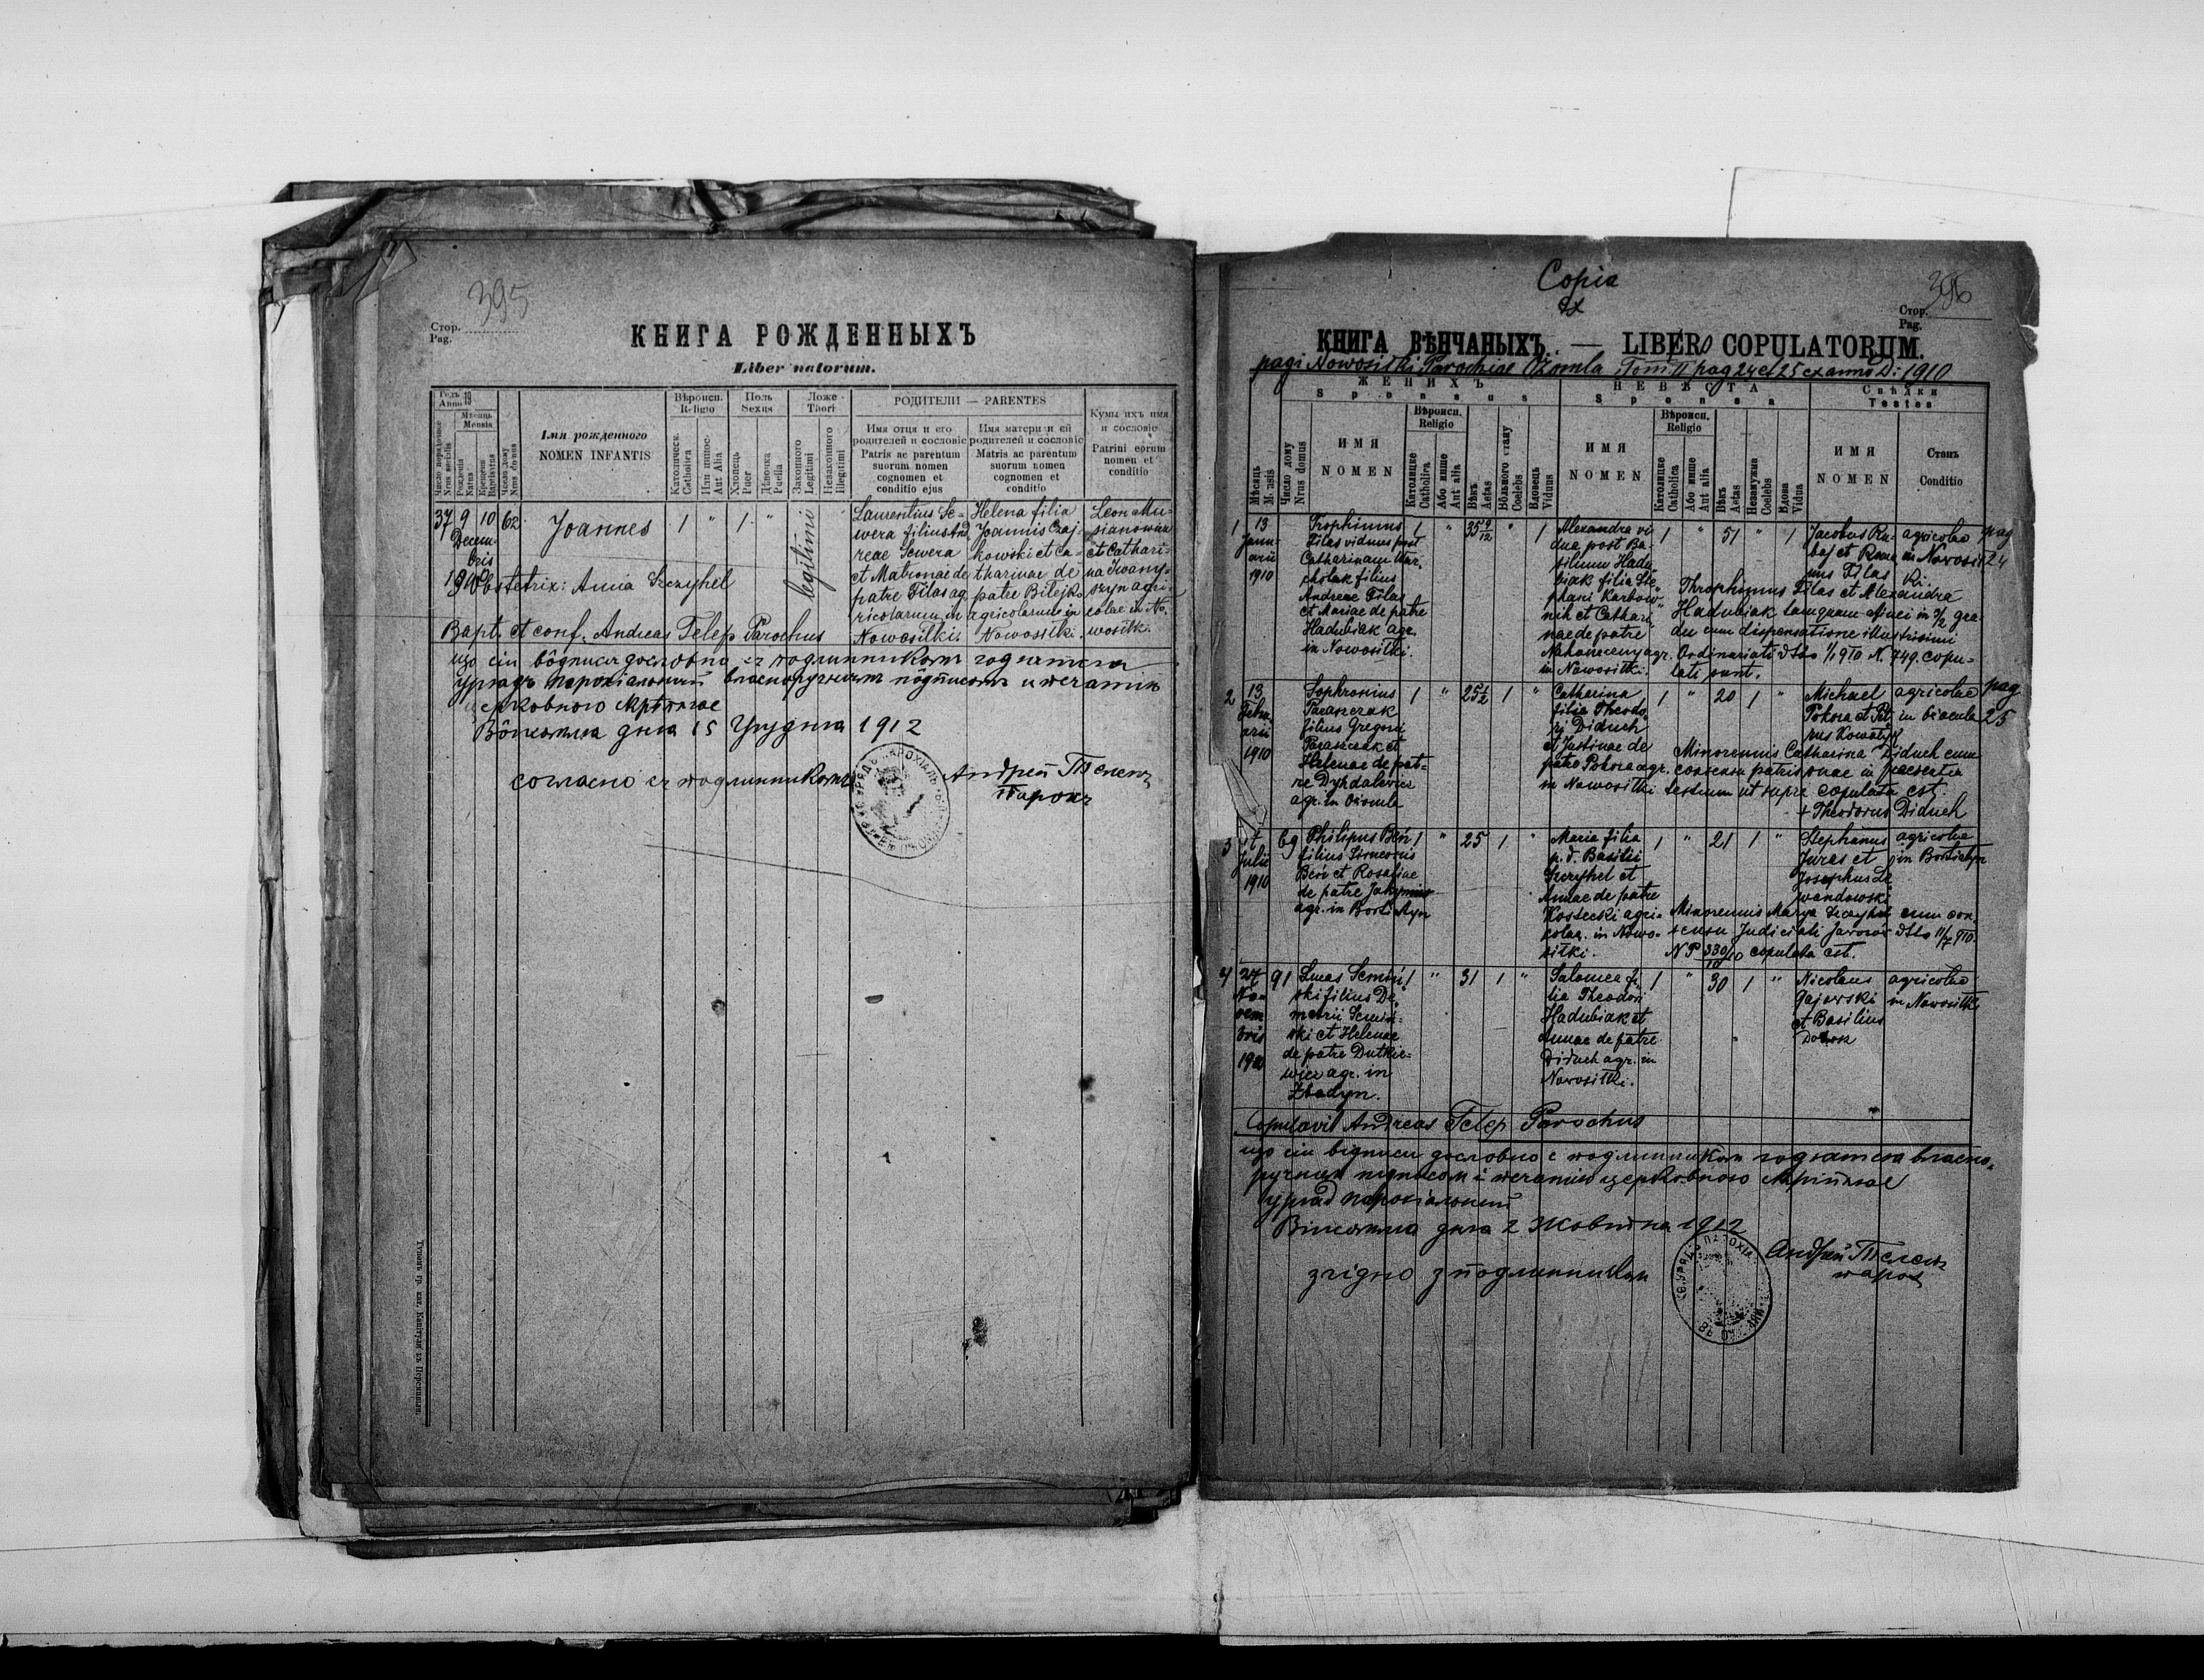 395
Стор.
Pag.
КНИГА РОЖДЕННЫХЪ
Liber natorum.
Годъ 19
Anno
Мѣсяць
Mensis
Число порядочное
Nrus serialis
Рожденія
Natus
Крещен
Baptisatus
Число дому
Nrus domus
Имя рожденного
NOMEN INFANTIS
Вѣроисп.
Religio
Католическ.
Catholica
Или инпос-
Aut Alia
Полъ
Sexus
Хлопець
Puer
Дѣвочка
Puella
Ложе
Thori
Законного
Legitimi
Незаконного
Illegitimi
РОДИТЕЛИ — PARENTES
Имя отця и его
родителей и сословіе
Patris ac parentum
suorum nomen
cognomen et
conditio ejus
Имя матери и ей
родителей и сословіе
Matris ac parentum
suorum nomen
cognomen et
conditio
Кумы ихъ имя
и сословіе
Patrini eorum
nomen et
conditio
37 9 10 62
Decem-
bris
Joannes
1 " 1 "
legitimi
Laurentius Se-
wera filius And
reae Sewera
et Matronae de
patre Filas ag
ricolarum in
Nowosilki.
Helena filia
Joannis Czaj-
kowski et Ca-
tharinae de
patre Bilejko
agricolarum in
Nowosilki.
Leon Mu-
sianowicz
et Cathari-
na Iwany-
szyn agri-
colae in No-
wosilk.
Obstetrix: Anna Szczyhel
Bapt. et conf. Andreas Telep Parochus
що сіи вôдписи дословно съ подлинникомъ годятся
урядъ парохіальный власноручнымъ пôдписомъ и печатію
церковною
дня 15 Грудня 1912
согласно съ подлинникомъ
Андрей Телепъ
парохъ
Copia
ex
396
Стор.
Pag.
КНИГА ВѢНЧАНЫХЪ. — LIBERO COPULATORUM.
pagi Nowosilki Parochiae Ożomla Tom. II pag 24 et 25 ex anno D: 1910
ЖЕНИХЪ
Sponsus
НЕВѢСТА
Sponsa
Свѣдки
Testes
Мѣсяць
Mensis
Число дому
Nrus domus
ИМЯ
NOMEN
Вѣроисп.
Religio
Католицке
Catholica
Або инше
Aut alia
Вѣкъ
Aetas
Вôльного стану
Coelebs
Вдовець
Viduus
ИМЯ
NOMEN
Вѣроисп.
Religio
Католицке
Catholica
Або инше
Aut alia
Вѣкъ
Aetas
Незамужна
Coelebs
Вдова
Vidua
ИМЯ
NOMEN
Станъ
Conditio
1 13
Janu-
arii
1910
Trophimus
Filas viduus post
Catharinam War-
cholak filius
Andreae Filas
et Mariae de patre
Hadubiak agr.
in Nowosilki.
1 " 35 9/12 " 1
Alexandra vi-
dua post Ba-
silium Hadu-
biak filia Ste-
phani Karbow-
nik et Cathari-
nae de patre
Nakoneczny agr.
in Nowosilki.
1 " 51 " 1
Jacobus Ru-
baj et Roma-
nus Filas
agricolae
in Nowosil
ki.
pag
24
Throphimus Filas et Alexandra
Hadubiak tamquam afines in 3/2 gra-
du cum dispensatione illustrissimi
Ordinariati dtto 1/1 910 N. 749. copu-
lati sunt.
2 13
Febru-
arii
1910
Sophronius
Paraszczak
filius Gregorii
Paraszczak et
Helenae de pat-
re Dyhdalewicz
agr. in Ożomla
1 " 25 1/2 1 "
Catharina
filia Theodo-
rj Diduch
et Justinae de
patre Pokora agr.
in Nowosilki
1 " 20 1 "
Michael
Pokora et Pet-
rus Kowalyk
agricolae
in
pag
25
Minorennis Catharina Diduch cum
consensu patris suae in praesentia
testium ut supra copulata est.
+ Theodorus Diduch
3
Julii
1910
69
Philipus Beń
filius Simeonis
Beń et Rosaliae
de patre
agr. in Bortiatyn
1 " 25 1 "
Maria filia
p. d. Basilii
Szczyhel et
Annae de patre
Kostecki agri-
colar. in Nowo-
silki.
1 " 21 1 "
Stephanus
Juras et
Josephus Le
wandowski
agricolae
in Bortiatyn
Minorennis Marya Szczyhel cum con-
sensu Judiciali Jaworów dtto 11/7 910.
N P 330/10 copulata est.
4 27
No-
vem
bris
1910
91
Lucas Semiń-
ski filius De-
metrii Semiń-
ski et Helenae
de patre Dutkie-
wicz agr. in
Zbadyn.
1 " 31 1 "
Salomea fi-
lia Theodori
Hadubiak et
Annae de patre
Diduch agr. in
Nowosilki.
1 " 30 1 "
Nicolaus
Gajewski
et Basilius
agricolae
in Nowosilki
Copulavit Andreas Telep Parochus
що сіи відписи дословно с подлинником годятся власно-
ручним підписом і печатию церковною
уряд парохіальний
дня 2 Жовтня 1912
згідно з подлинником
Андрей Телепъ
парох